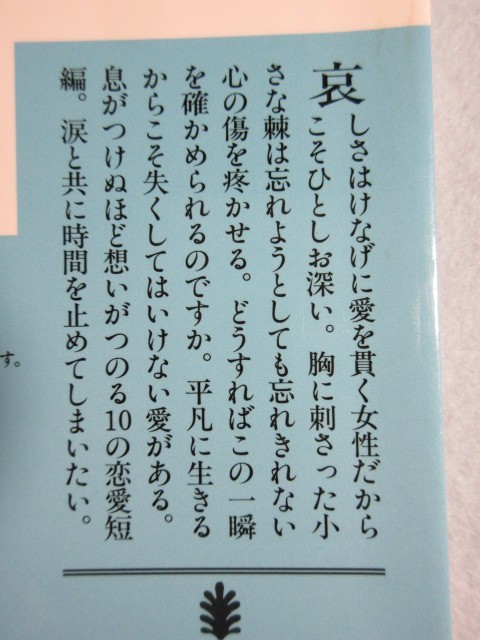 哀しさはけなげに愛を貫く女性だから
こそひとしお深い。胸に刺さった小
さな棘は忘れようとしても忘れきれない
心の傷を疼かせる。どうすればこの一瞬
を確かめられるのですか。平凡に生きる
からこそ失くしてはいけない愛がある。
息がつけぬほど想いがつのる10の恋愛短
編。涙と共に時間を止めてしまいたい。
す。